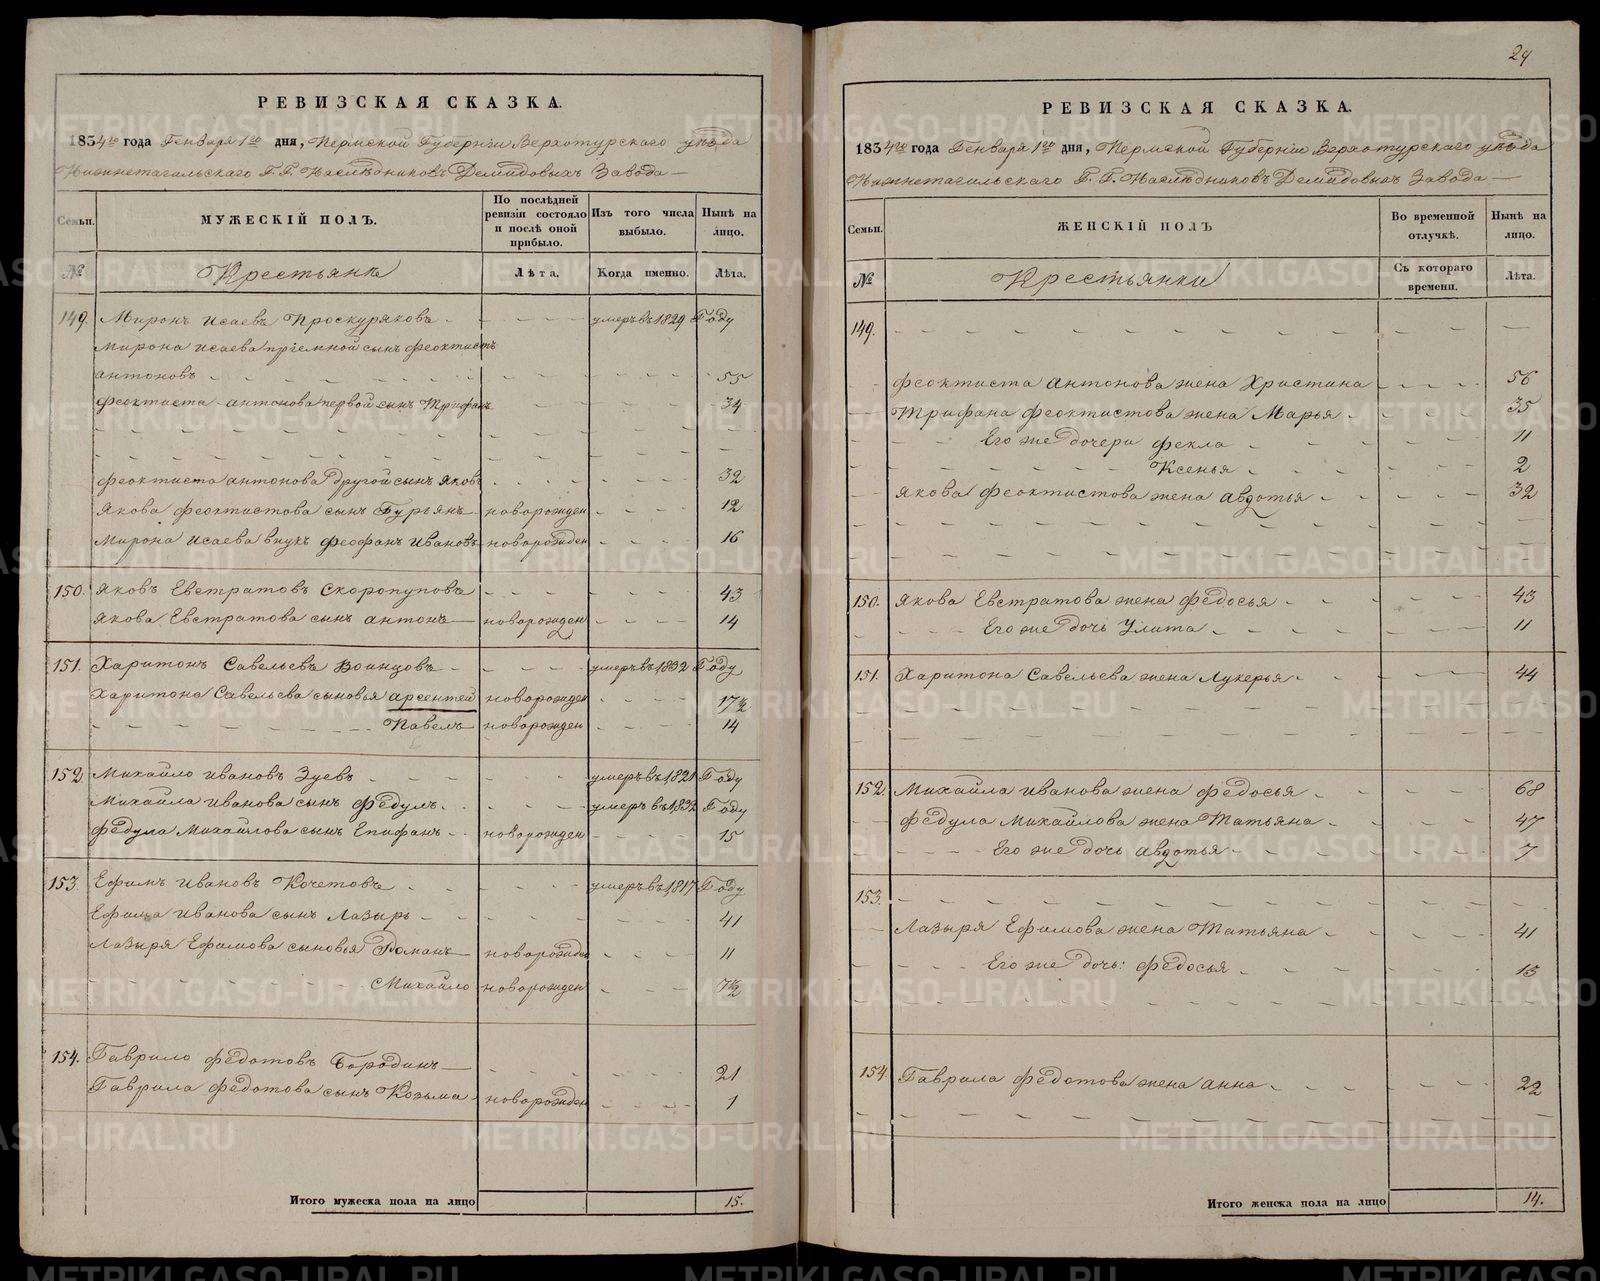 РЕВИЗСКАЯ СКАЗКА.
1834го года Генваря 1го дня, Пермской Губерніи Верхотурскаго уѣзда
Нижнетагильскаго Г. Г. Наслѣдниковъ Демидовыхъ Завода
Семьи. МУЖЕСКІЙ ПОЛЪ. По послѣдней ревизіи состояло и послѣ оной прибыло. Изъ того числа выбыло. Нынѣ на лицо.
№ Крестьяна Лѣта. Когда именно. Лѣта.
149. Миронъ Исаевъ Проскуряковъ умеръ въ 1829 Году
Мирона Исаева пріемной сынъ Феоктистъ
Антоновъ 55
Феоктиста Антонова первой сынъ Трифанъ 34
Феоктиста Антонова другой сынъ Яковъ 32
Якова Феоктистова сынъ Гурьянъ новорожден 12
Мирона Исаева внукъ Феофанъ Ивановъ новорожден 16
150. Яковъ Евстратовъ Скоропуповъ 43
Якова Евстратова сынъ Антонъ новорожден 14
151. Харитонъ Савельевъ Воинцовъ умеръ въ 1832 Году
Харитона Савельева сыновья Арсентей новорожден 17½
Павелъ новорожден 14
152. Михайло Ивановъ Зуевъ умеръ въ 1821 Году
Михайла Иванова сынъ Федулъ умеръ въ 1832 Году
Федула Михайлова сынъ Епифанъ новорожден 15
153. Ефимъ Ивановъ Кочетовъ умеръ въ 1817 Году
Ефима Иванова сынъ Лазырь 41
Лазыря Ефимова сыновья Романъ новорожден 11
Михайло новорожден 7½
154. Гаврило Федотовъ Бородинъ 21
Гаврила Федотова сынъ Козьма новорожден 1
Итого мужеска пола на лицо 15.
24
РЕВИЗСКАЯ СКАЗКА.
1834го года Генваря 1го дня, Пермской Губерніи Верхотурскаго уѣзда
Нижнетагильскаго Г. Г. Наслѣдниковъ Демидовыхъ Завода
Семьи. ЖЕНСКІЙ ПОЛЪ Во временной отлучкѣ. Нынѣ на лицо.
№ Крестьянки Съ котораго времени. Лѣта.
149.
Феоктиста Антонова жена Христина 56
Трифана Феоктистова жена Марья 35
Его же дочери Фекла 11
Ксенья 2
Якова Феоктистова жена Авдотья 32
150. Якова Евстратова жена Федосья 43
Его же дочь Улита 11
151. Харитона Савельева жена Лукерья 44
152. Михайла Иванова жена Федосья 68
Федула Михайлова жена Татьяна 47
Его же дочь Авдотья 7
153.
Лазыря Ефимова жена Татьяна 41
Его же дочь: Федосья 13
154 Гаврила Федотова жена Анна 22
Итого женска пола на лицо 14.
METRIKI.GASO-URAL.RU